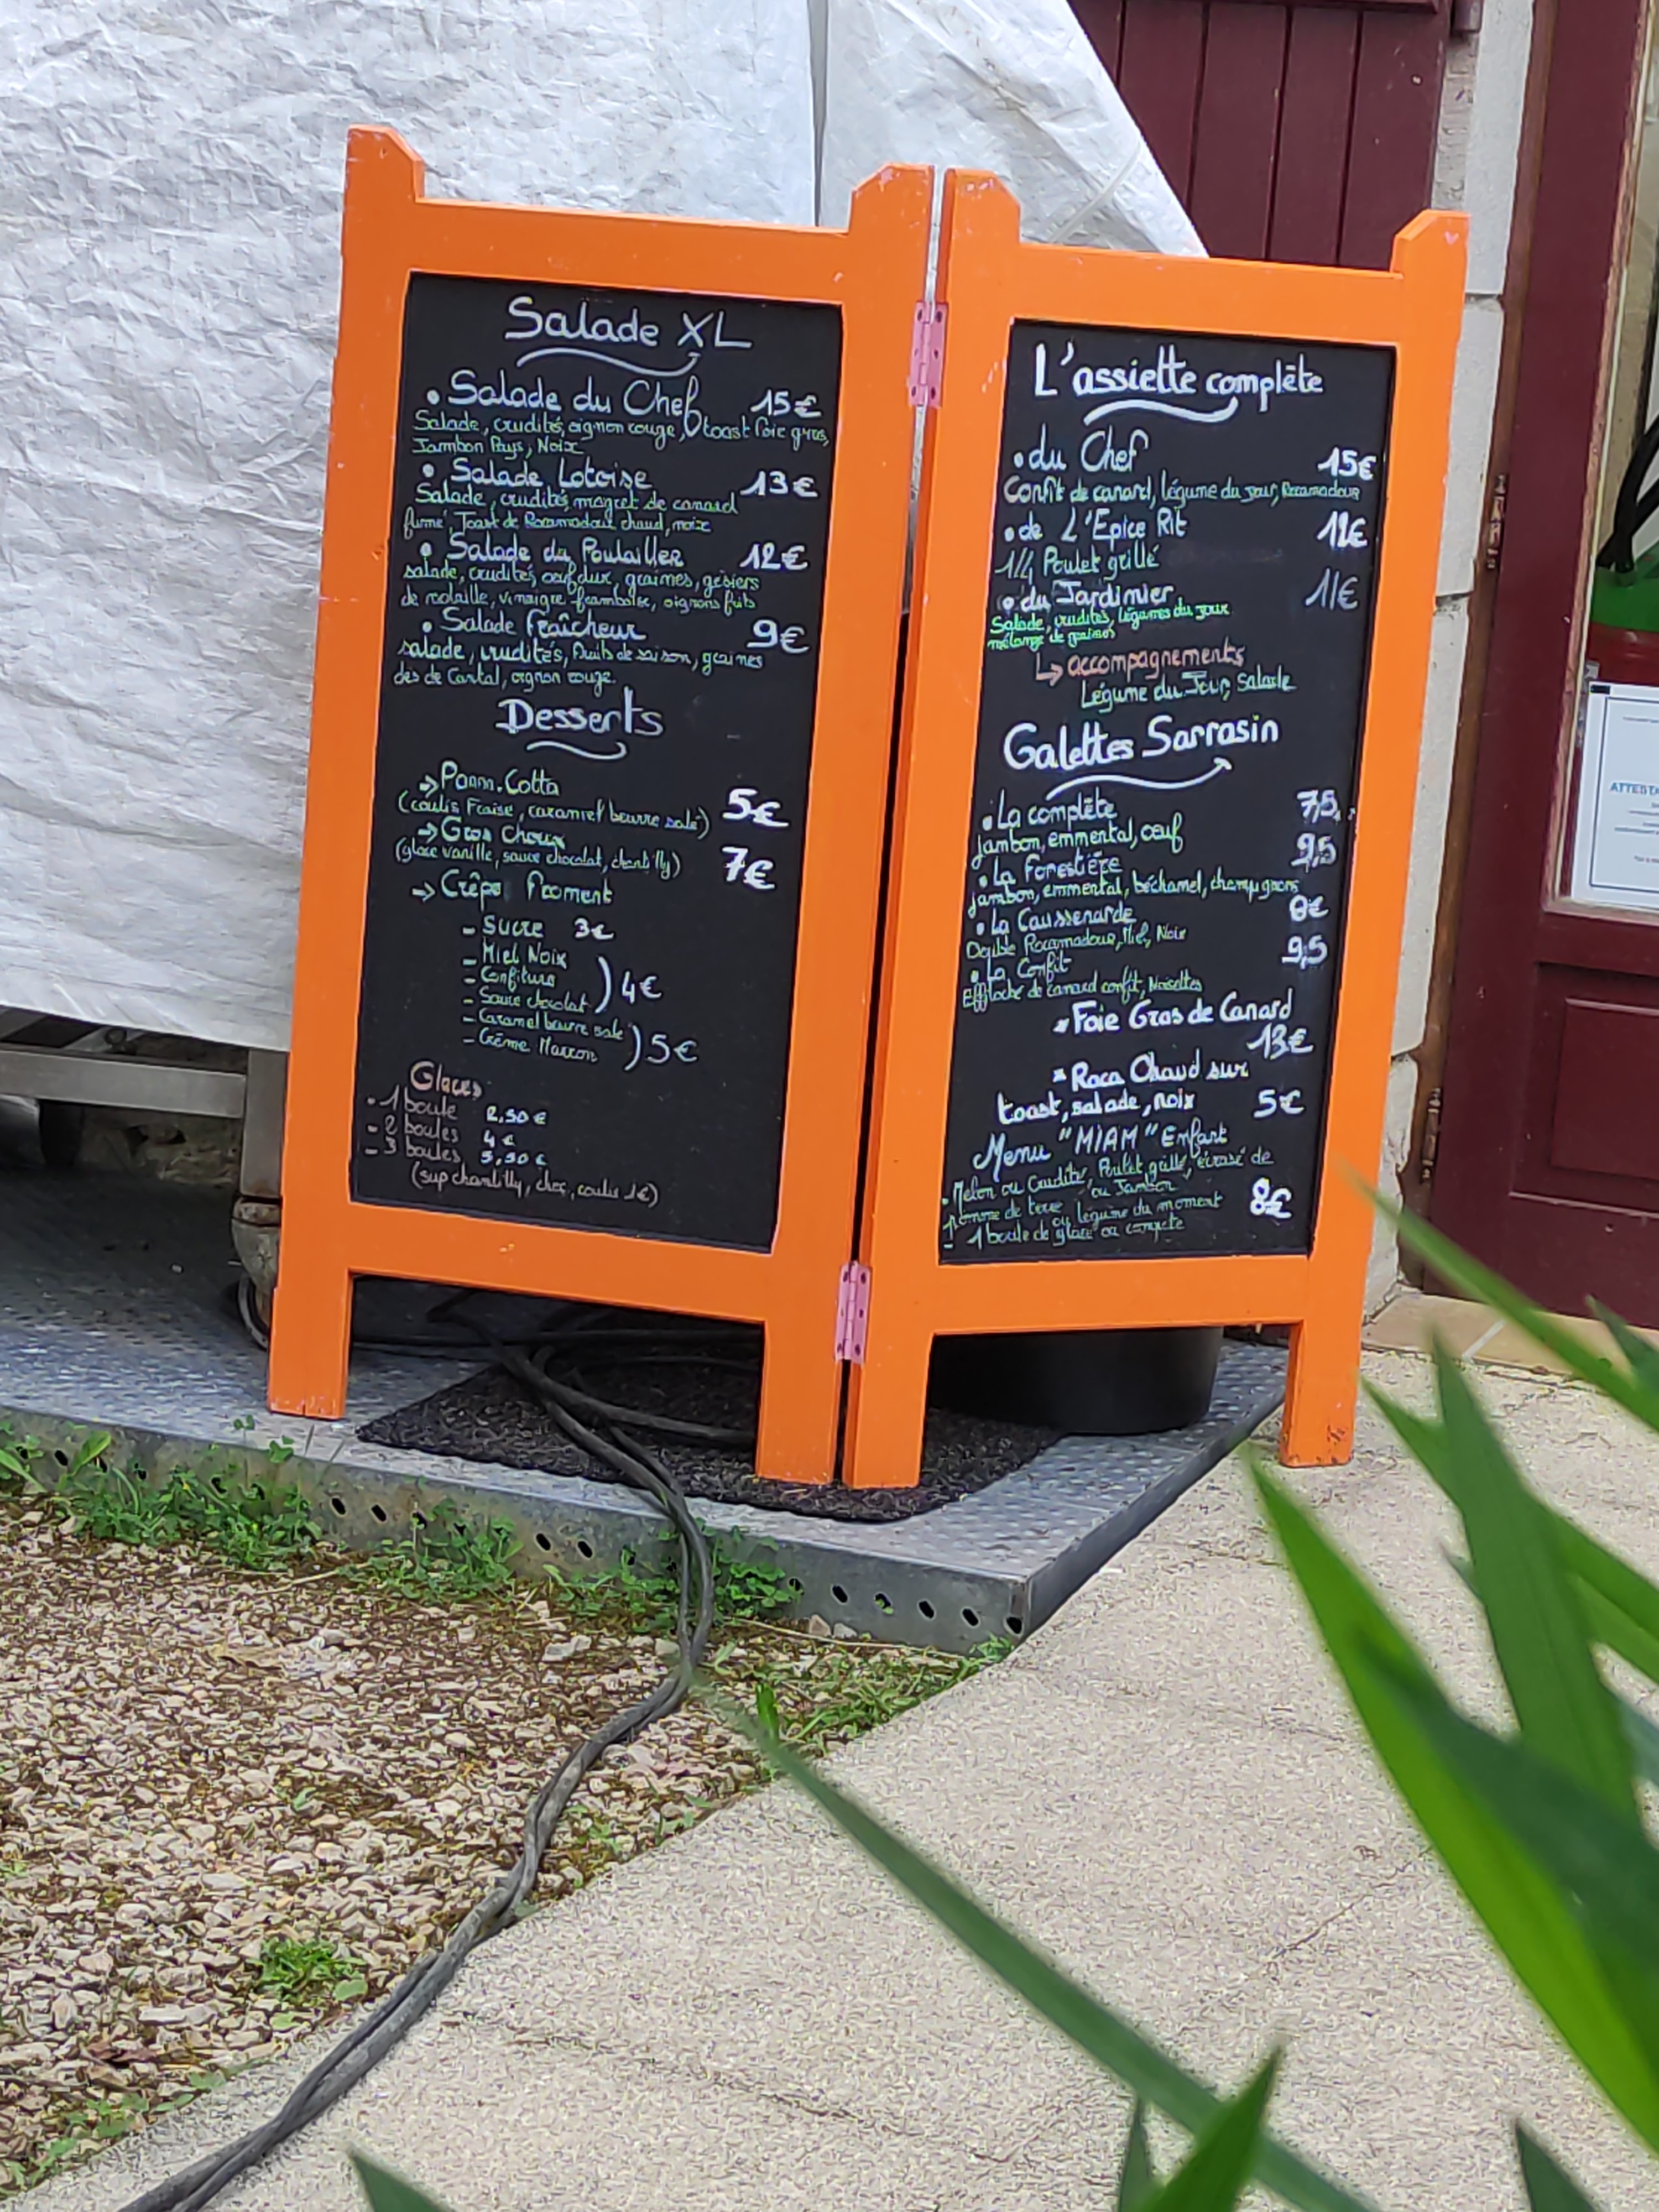 Salade XL
• Salade du Chef 15€
Salade, crudités, oignon rouge, toast foie gras,
Jambon Pays, Noix
• Salade Lotoise 13€
Salade, crudités, magret de canard
fumé, Toast de Rocamadour chaud, noix
• Salade du Poulailler 12€
salade, crudités, oeuf dur, graines, gésiers
de volaille, vinaigre framboise, oignons frits
• Salade fraîcheur 9€
salade, crudités, fruits de saison, graines
dés de Cantal, oignon rouge.
Desserts
→ Pann.Cotta
(coulis Fraise, caramel beurre salé) 5€
→ Gros Choux
(glace vanille, sauce chocolat, chantilly) 7€
→ Crêpe Froment
- Sucre 3€
- Miel Noix
- Confiture ) 4€
- Sauce chocolat
- Caramel beurre salé
- Crème Marron ) 5€
Glaces
- 1 boule 2,50 €
- 2 boules 4 €
- 3 boules 5,50 €
(sup chantilly, choc, coulis 1€)
L'assiette complète
• du Chef 15€
Confit de canard, légume du jour, Rocamadour
• de L'Epice Rit 12€
1/4 Poulet grillé
• du Jardinier 11€
Salade, crudités, légumes du jour
mélange de graines
↳ accompagnements
Légume du Jour, Salade
Galettes Sarrasin
• La complète 7,5
jambon, emmental, oeuf
• La Forestière 9,5
jambon, emmental, béchamel, champignons
• La Caussenarde 8€
Rocamadour, Miel, Noix
• La Confit 9,5
Effiloché de canard confit, Noisettes
* Foie Gras de Canard
13€
* Roca Chaud sur
toast, salade, noix 5€
Menu "MIAM" Enfant
- Melon ou Crudité, Poulet grillé, écrasé de
ou Jambon
pomme de terre ou légume du moment 8€
- 1 boule de glace ou compote
ATTESTA